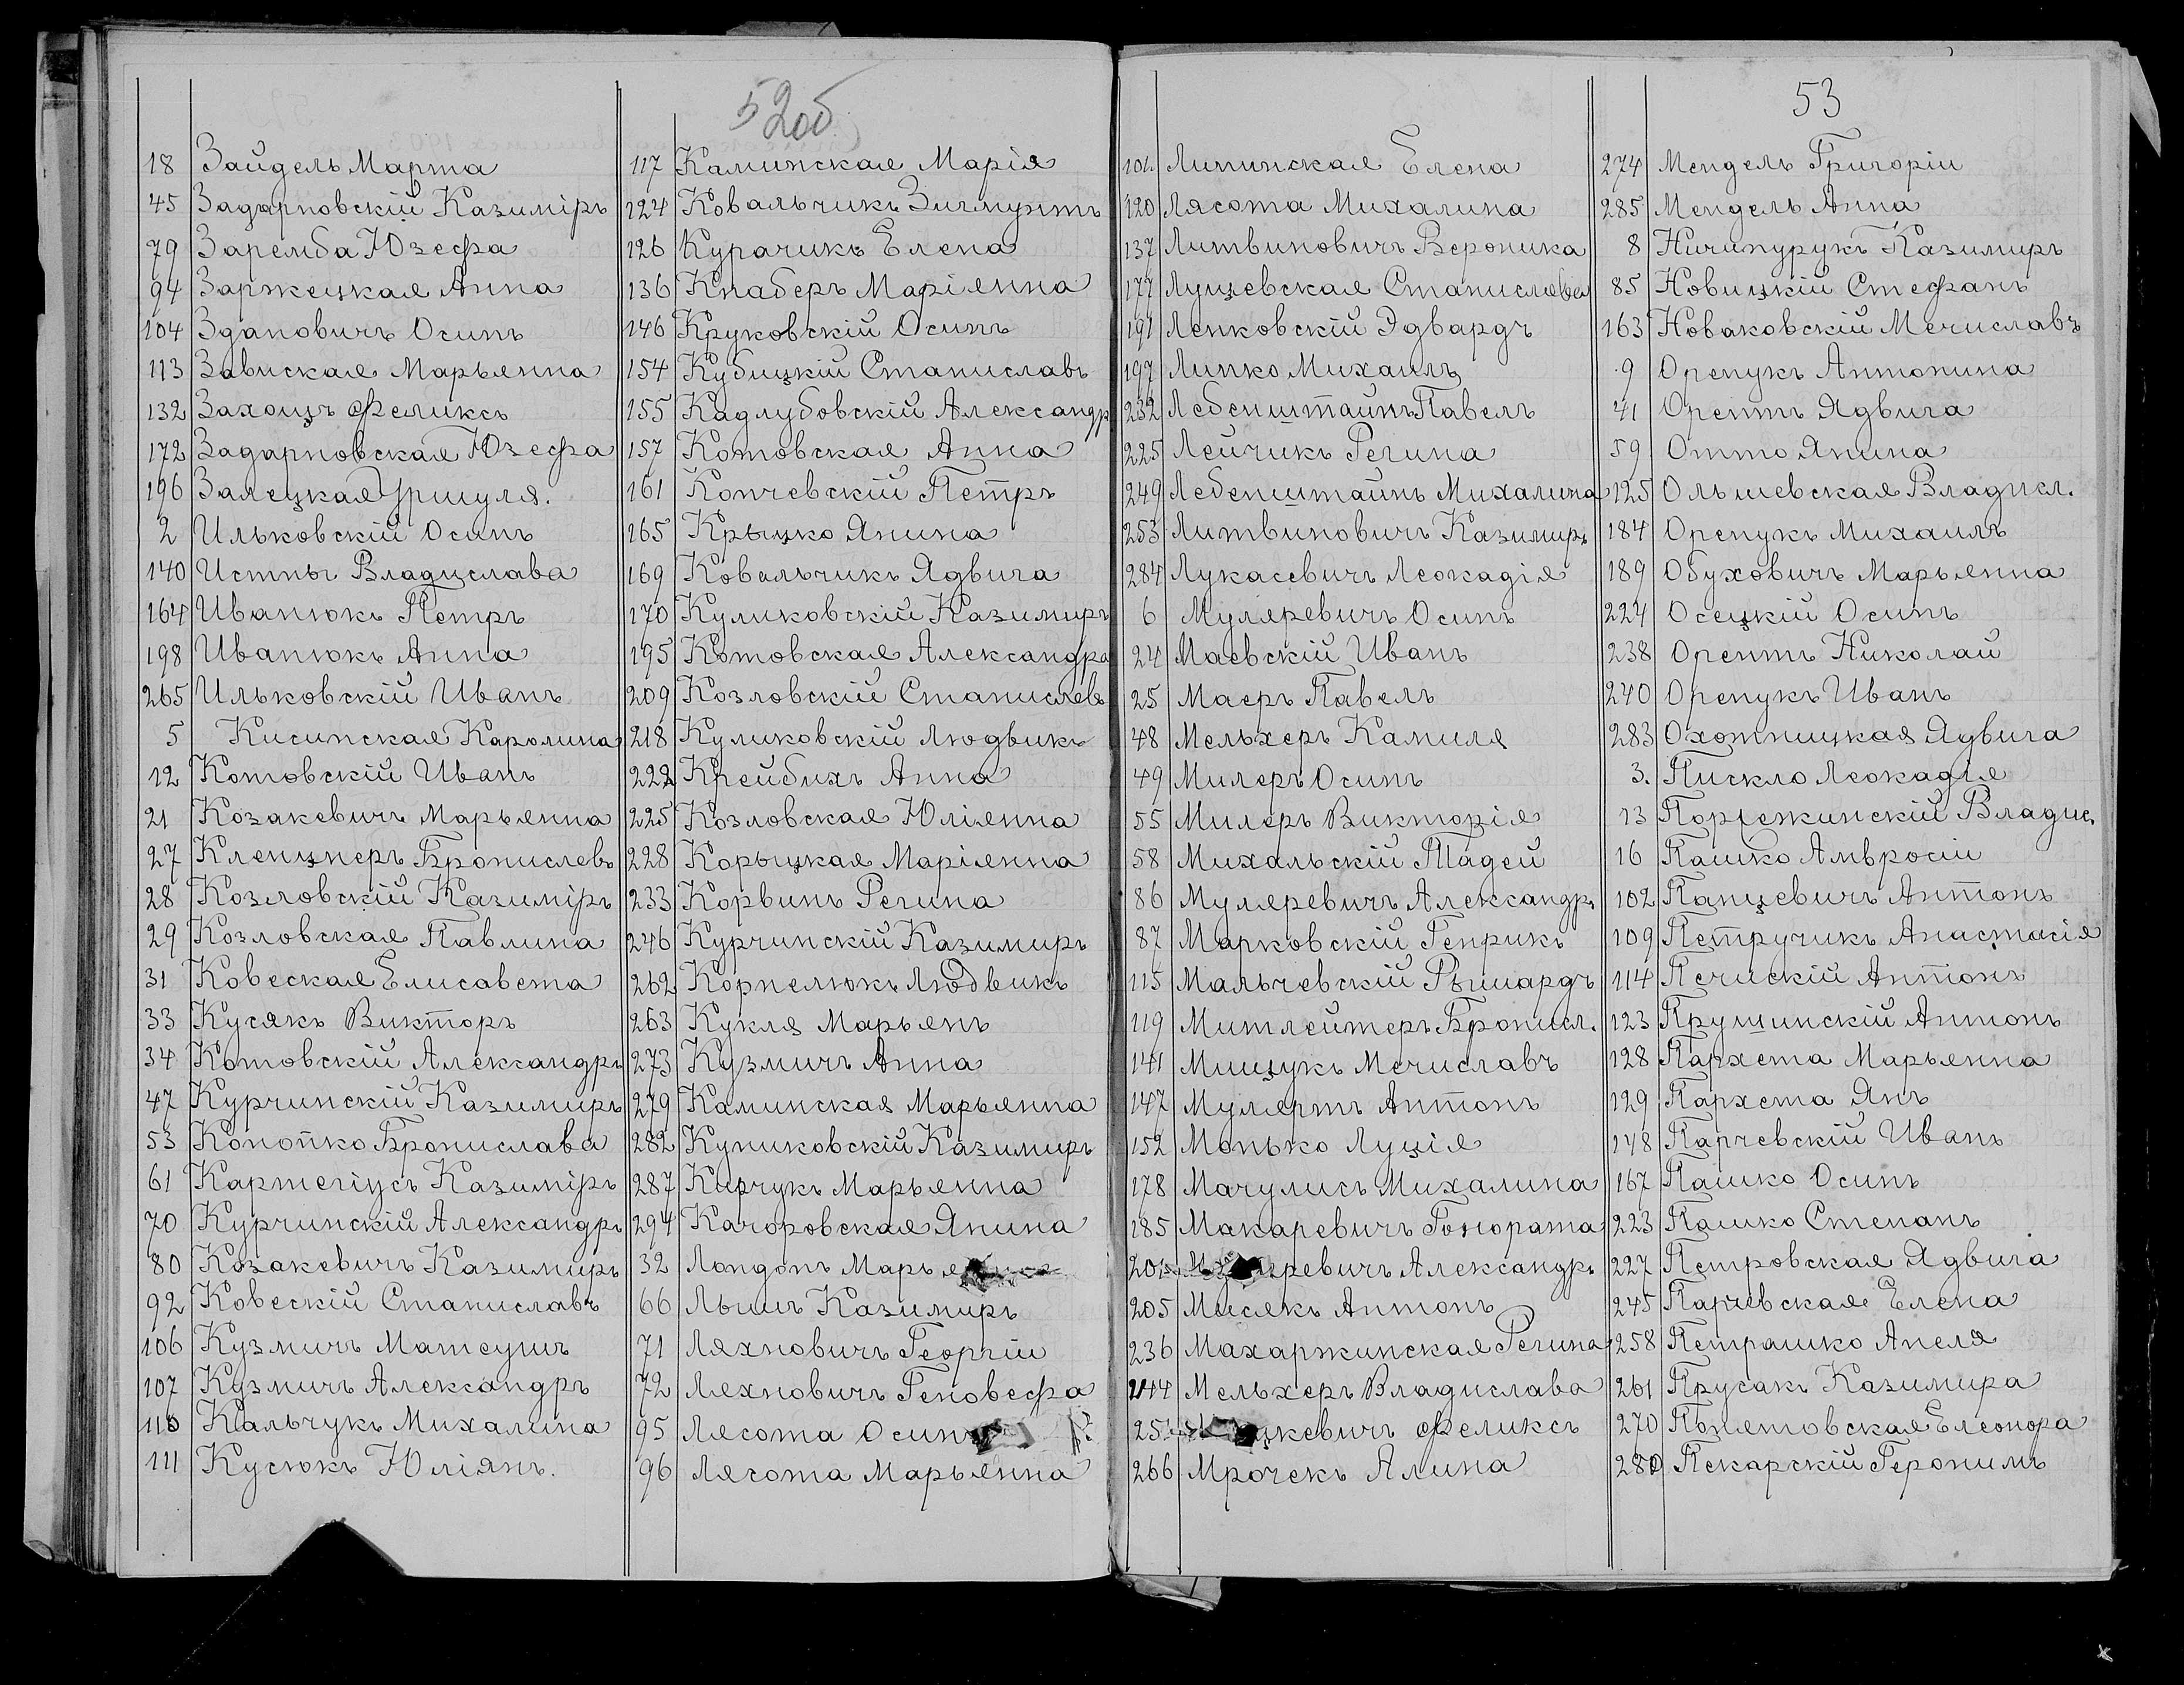 52об
18 Зайдель Марта
45 Задарновскій Казиміръ
79 Заремба Юзефа
94 Заржецкая Анна
104 Здановичъ Осипъ
113 Завиская Марьянна
132 Захоцъ Феликсъ
172 Задарновская Юзефа
196 Залецкая Уршуля.
2 Ильковскій Осипъ
140 Истны Владислава
164 Иванюкъ Петръ
198 Иванюкъ Анна
265 Ильковскій Иванъ
5 Кисинская Каролина
12 Котовскій Иванъ
21 Козакевичъ Марьянна
27 Кленцнеръ Брониславъ
28 Козловскій Казиміръ
29 Козловская Павлина
31 Ковеская Елисавета
33 Кусякъ Викторъ
34 Котовскій Александръ
47 Курчинскій Казимиръ
53 Конопко Бронислава
61 Картегіусъ Казиміръ
70 Курчинскій Александръ
80 Козакевичъ Казимиръ
92 Ковескій Станиславъ
106 Кузмичъ Матеушъ
107 Кузмичъ Александръ
110 Кальчукъ Михалина
111 Кусюкъ Юліянъ.
117 Калинская Марія
124 Ковальчикъ Зигмунтъ
126 Курачикъ Елена
136 Кнаберъ Маріянна
146 Круковскій Осипъ
154 Кубицкій Станиславъ
155 Кадлубовскій Александр
157 Котовская Анна
161 Кончевскій Петръ
165 Крыцко Янина
169 Ковальчикъ Ядвига
170 Куликовскій Казимиръ
195 Котовская Александра
209 Козловскій Станиславъ
218 Куликовскій Людвикъ
222 Крейбихъ Анна
225 Козловская Юліянна
228 Корыцкая Маріянна
233 Корвинъ Регина
246 Курчинскій Казимиръ
262 Корнелюкъ Людвикъ
263 Кукля Марьянъ
273 Кузмичъ Анна
279 Каминская Марьянна
282 Куниковскій Казимиръ
287 Карчукъ Марьянна
294 Качоровская Янина
32 Лондонъ Марья
66 Лышъ Казимиръ
71 Ляхновичъ Георгій
72 Ляхновичъ Геновефа
95 Лясота Осипъ
96 Лясота Марьянна
53
101 Липинская Елена
120 Лясота Михалина
137 Литвиновичъ Вероника
177 Лущевская Станислава
191 Ленковскій Эдвардъ
197 Липко Михаилъ
232 Лебенштайнъ Павелъ
225 Лейчикъ Регина
249 Лебенштайнъ Михалина
253 Литвиновичъ Казимиръ
284 Лукасевичъ Леокадія
6 Муляревичъ Осипъ
24 Маевскій Иванъ
25 Маеръ Павелъ
48 Мельхеръ Камиля
49 Милеръ Осипъ
55 Милеръ Викторія
58 Михальскій Тадей
86 Муляревичъ Александръ
87 Марковскій Генрикъ
115 Мальчевскій Рышардъ
119 Митлейтеръ Бронисл.
141 Мищукъ Мечиславъ
147 Мулярть Антонъ
152 Монько Луція
178 Мачулисъ Михалина
185 Макаревичъ Гонората
201 ревичъ Александръ
205 Мисякъ Антонъ
236 Махаржинская Регина
244 Мельхеръ Владислава
25 цкевичъ Феликсъ
266 Мрочекъ Алина
274 Мендель Григорій
285 Мендель Анна
8 Ничипурукъ Казимиръ
85 Новицкій Стефанъ
163 Новаковскій Мечиславъ
9 Оренукъ Антонина
41 Орентъ Ядвига
59 Отто Янина
125 Ольшевская Владисл.
184 Оренукъ Михаилъ
189 Обуховичъ Марьянна
224 Осецкій Осипъ
238 Орентъ Николай
240 Оренукъ Иванъ
283 Охотницкая Ядвига
3. Пискло Леокадія
13 Поржежинскій Владис.
16 Пашко Амвросій
102 Панцевичъ Антонъ
109 Петручикъ Анастасія
114 Печискій Антонъ
123 Прушинскій Антонъ
128 Пархета Марьянна
129 Пархета Янъ
148 Парчевскій Иванъ
167 Пашко Осипъ
223 Пашко Степанъ
227 Петровская Ядвига
245 Парчевская Елена
258 Петрашко Анеля
261 Прусакъ Казимира
270 Понятовская Елеонора
280 Пекарскій Геронимъ